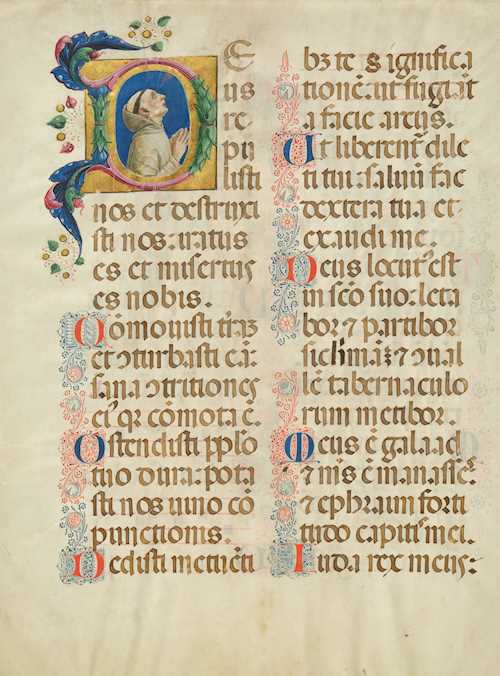 DE
us
re
pu
listi
nos et destruxi
sti nos: iratus
es et misertus
es nobis.
Cōmovisti t'rā₃
et ꝯturbasti eā:
sana ꝯtritiones
ei' qꝛ cōmota ē.
Ostendisti pplō
tuo dura: pota
sti nos vino cō
punctionis.
Dedisti metuēti
bꝫ te significa
tionē: ut fugiāt
a facie arcus.
Ut liberent' dile
cti tui: salvū fac
dextera tua et
exaudi me.
Deus locut' est
in scō suo: leta
bor ⁊ partibor
sichimā₃ ⁊ ꝯval
lē tabernaculo
rum metibor.
Meus ē galaad
⁊ m's ē manasse':
⁊ ephraim forti
tudo capit' mei.
Iuda rex meus: